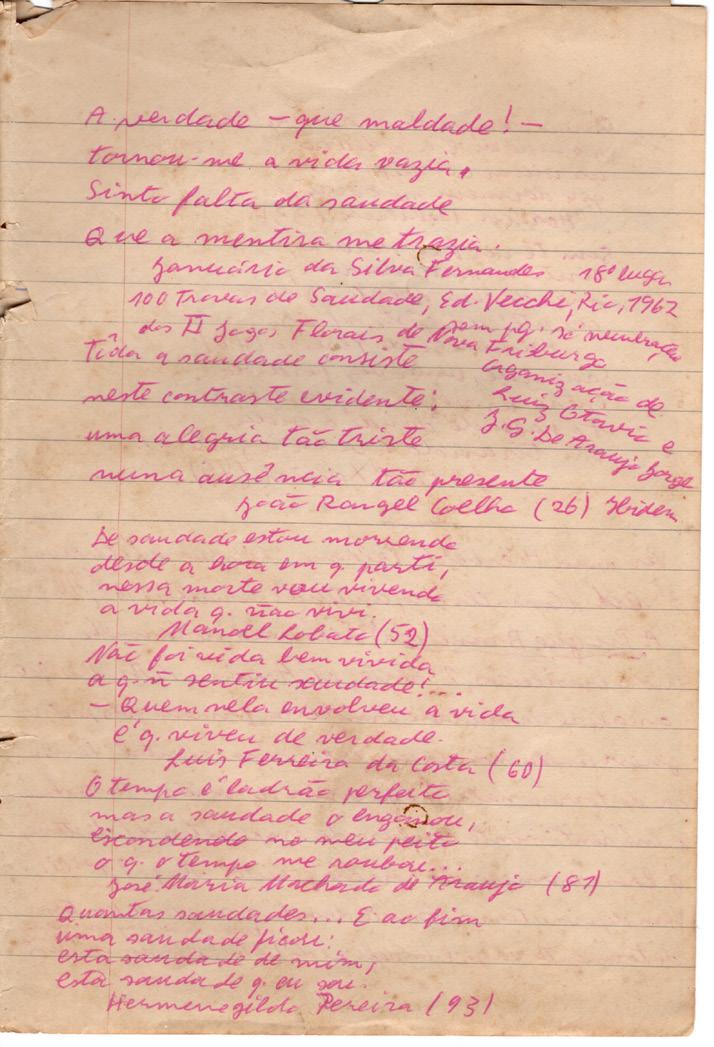 A verdade – que maldade! –
tornou-me a vida vazia.
Sinto falta da saudade
Que a mentira me trazia.
Januário da Silva Fernandes 18º lugar
100 Trovas de Saudade, Ed. Vecchi, Rio, 1962
sem pg. s/ numeração
dos II Jogos Florais de Nova Friburgo
Organização de
Luiz Otávio e
J. G. De Araujo Jorge
Tôda a saudade consiste
neste contraste evidente:
uma alegria tão triste
numa ausência tão presente
João Rangel Coelho (26) Ibidem
De saudade estou morrendo
desde a hora em q. parti,
nessa morte vou vivendo
a vida q. não vivi.
Manoel Lobato (52)
Não foi vida bem vivida
a q. ñ sentiu saudade!...
– Quem nela envolveu a vida
é q. viveu de verdade.
Luis Ferreira da Costa (60)
O tempo é ladrão perfeito
mas a saudade o enganou,
escondendo no meu peito
o q. o tempo me roubou...
José Maria Machado de Araujo (81)
Quantas saudades... E ao fim
uma saudade ficou:
esta saudade de mim,
esta saudade q. eu sou.
Hermenegildo Pereira (93)